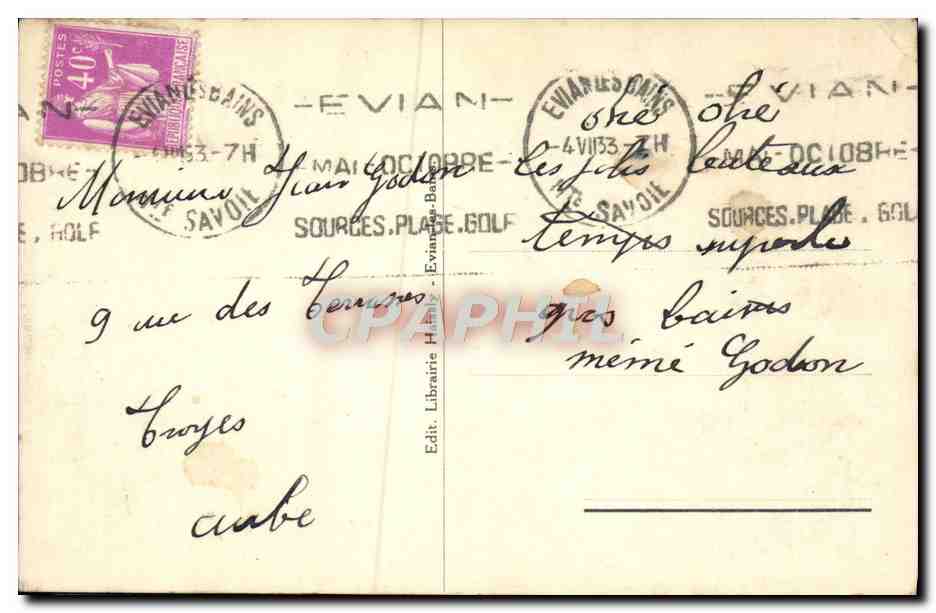 POSTES
40c
EVIAN LES BAINS
4 VII 33 - 7H
HTE SAVOIE
EVIAN
MAI-OCTOBRE
SOURCES.PLAGE.GOLF
EVIAN LES BAINS
4 VII 33 - 7H
HTE SAVOIE
EVIAN
MAI-OCTOBRE
SOURCES.PLAGE.GOLF
Monsieur Jean Godon
9 rue des Terrasses
Troyes
aube
ohé ohé
les jolis bateaux
temps superbe
gros baisers
mémé Godon
Edit. Librairie
Evian-les-Bains
CPAPHIL